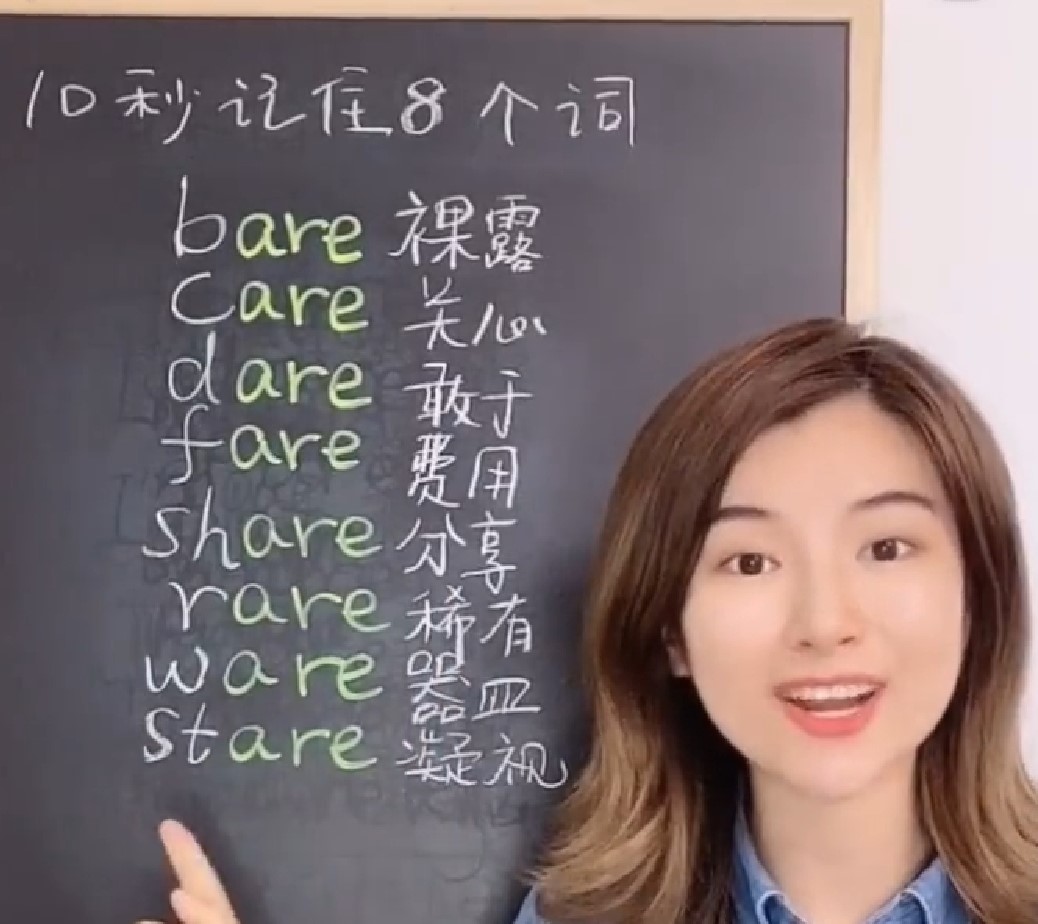 10秒记住8个词
bare 裸露
care 关心
dare 敢于
fare 费用
share 分享
rare 稀有
ware 器皿
stare 凝视